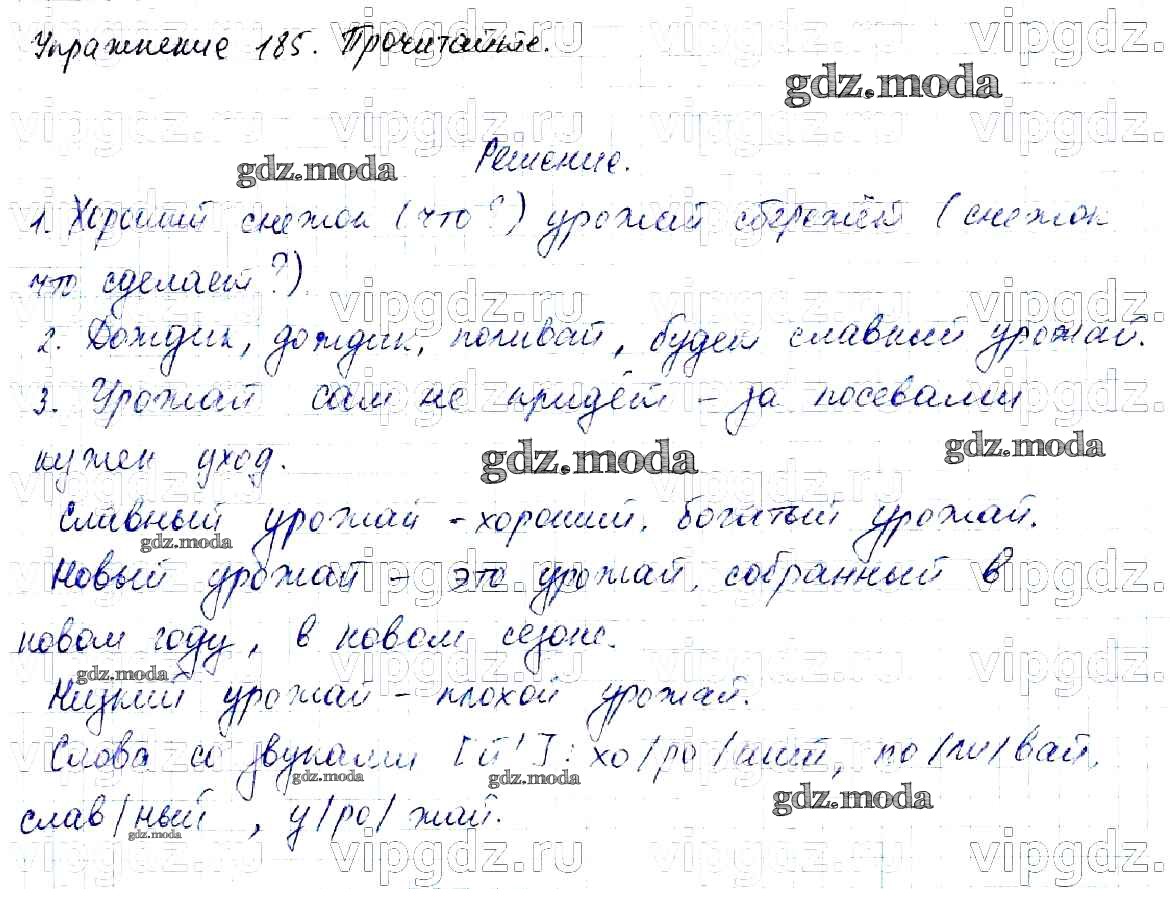 Упражнение 185. Прочитайте.
gdz.moda
Решение.
gdz.moda
1. Хороший снежок (что?) урожай сбережёт (снежок
что сделает?)
2. Дождик, дождик, поливай, будет славный урожай.
3. Урожай сам не придёт – за посевами
нужен уход.
gdz.moda
gdz.moda
Славный урожай - хороший, богатый урожай.
gdz.moda
Новый урожай – это урожай, собранный в
новом году, в новом сезоне.
gdz.moda
Низкий урожай – плохой урожай.
Слова со звуками [й']: хо/ро/ший, по/ли/вай,
gdz.moda
gdz.moda
gdz.moda
слав/ный, у/ро/жай.
gdz.moda
vipgdz.ru